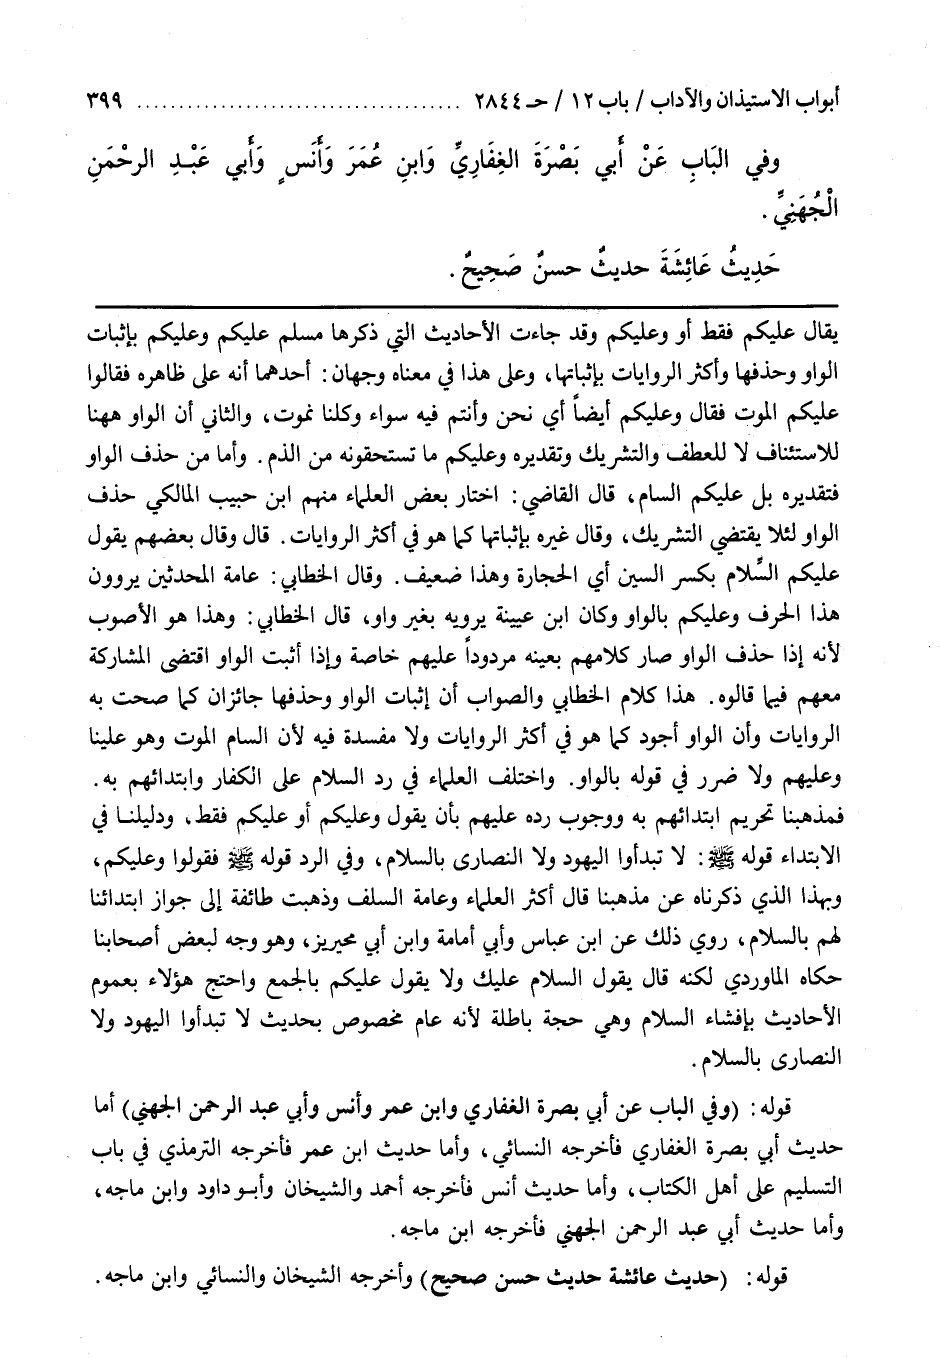 أبواب الاستيذان والآداب / باب ١٢ / حـ ٢٨٤٤ ..................................... ٣٩٩
وفي البَابِ عَنْ أَبي بَصْرَةَ الغِفَاريِّ وَابنِ عُمَرَ وَأَنَس ٍ وَأَبي عَبْدِ الرحْمَنِ
الْجُهَنِيِّ.
حَدِيثُ عَائِشَةَ حديثٌ حسنٌ صَحِيحٌ.
يقال عليكم فقط أو وعليكم وقد جاءت الأحاديث التي ذكرها مسلم عليكم وعليكم بإثبات
الواو وحذفها وأكثر الروايات بإثباتها، وعلى هذا في معناه وجهان: أحدهما أنه على ظاهره فقالوا
عليكم الموت فقال وعليكم أيضاً أي نحن وأنتم فيه سواء وكلنا نموت، والثاني أن الواو ههنا
للاستئناف لا للعطف والتشريك وتقديره وعليكم ما تستحقونه من الذم. وأما من حذف الواو
فتقديره بل عليكم السام، قال القاضي: اختار بعض العلماء منهم ابن حبيب المالكي حذف
الواو لئلا يقتضي التشريك، وقال غيره بإثباتها كما هو في أكثر الروايات. قال وقال بعضهم يقول
عليكم السِّلام بكسر السين أي الحجارة وهذا ضعيف. وقال الخطابي: عامة المحدثين يروون
هذا الحرف وعليكم بالواو وكان ابن عيينة يرويه بغير واو، قال الخطابي: وهذا هو الأصوب
لأنه إذا حذف الواو صار كلامهم بعينه مردوداً عليهم خاصة وإذا أثبت الواو اقتضى المشاركة
معهم فيما قالوه. هذا كلام الخطابي والصواب أن إثبات الواو وحذفها جائزان كما صحت به
الروايات وأن الواو أجود كما هو في أكثر الروايات ولا مفسدة فيه لأن السام الموت وهو علينا
وعليهم ولا ضرر في قوله بالواو. واختلف العلماء في رد السلام على الكفار وابتدائهم به.
فمذهبنا تحريم ابتدائهم به ووجوب رده عليهم بأن يقول وعليكم أو عليكم فقط، ودليلنا في
الابتداء قوله ﷺ: لا تبدأوا اليهود ولا النصارى بالسلام، وفي الرد قوله ﷺ فقولوا وعليكم،
وبهذا الذي ذكرناه عن مذهبنا قال أكثر العلماء وعامة السلف وذهبت طائفة إلى جواز ابتدائنا
لهم بالسلام، روي ذلك عن ابن عباس وأبي أمامة وابن أبي محيريز، وهو وجه لبعض أصحابنا
حكاه الماوردي لكنه قال يقول السلام عليك ولا يقول عليكم بالجمع واحتج هؤلاء بعموم
الأحاديث بإفشاء السلام وهي حجة باطلة لأنه عام مخصوص بحديث لا تبدأوا اليهود ولا
النصارى بالسلام.
قوله: (وفي الباب عن أبي بصرة الغفاري وابن عمر وأنس وأبي عبد الرحمن الجهني) أما
حديث أبي بصرة الغفاري فأخرجه النسائي، وأما حديث ابن عمر فأخرجه الترمذي في باب
التسليم على أهل الكتاب، وأما حديث أنس فأخرجه أحمد والشيخان وأبو داود وابن ماجه،
وأما حديث أبي عبد الرحمن الجهني فأخرجه ابن ماجه.
قوله: (حديث عائشة حديث حسن صحيح) وأخرجه الشيخان والنسائي وابن ماجه.